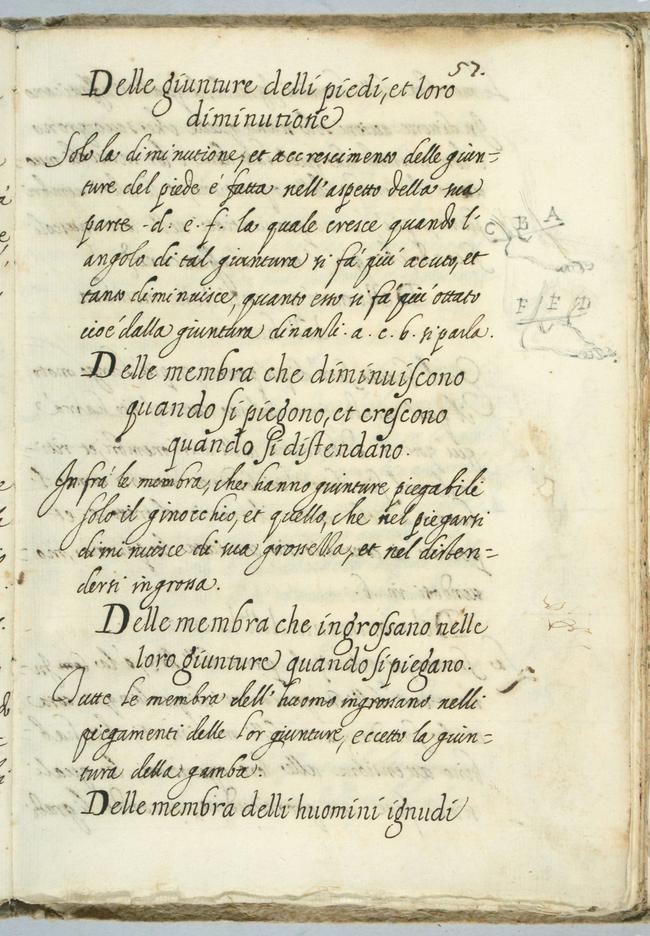 57.
Delle giunture delli piedi, et loro
diminutione
Solo la diminutione, et accrescimento delle giun=
ture del piede é fatta nell'aspetto della sua
parte -d. e. f. la quale cresce quando l'
angolo di tal giuntura si fá piú acuto, et
tanto diminuisce, quanto esso si fá piú ottato
cioé dalla giuntura dinanti. a. c. b. si parla.
Delle membra che diminuiscono
quando si piegono, et crescono
quando si distendano.
In frá le membra, che hanno giunture piegabili
solo il ginocchio, et quello, che nel piegarsi
diminuisce di sua grossezza, et nel disten=
dersi ingrossa.
Delle membra che ingrossano nelle
loro giunture quando si piegano.
Tutte le membra dell' huomo ingrossano nelli
piegamenti delle lor giunture, eccetto la giun=
tura della gamba.
Delle membra delli huomini ignudi
C B A
F E D